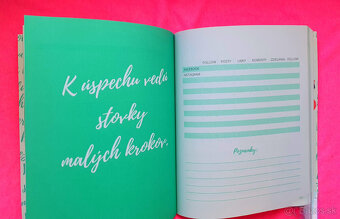 K úspechu vedú
stovky
malých krokov.
FOLLOW POSTY LIKES KOMENTY ZDIEĽANIA FOLLOW
FACEBOOK
INSTAGRAM
Poznámky: